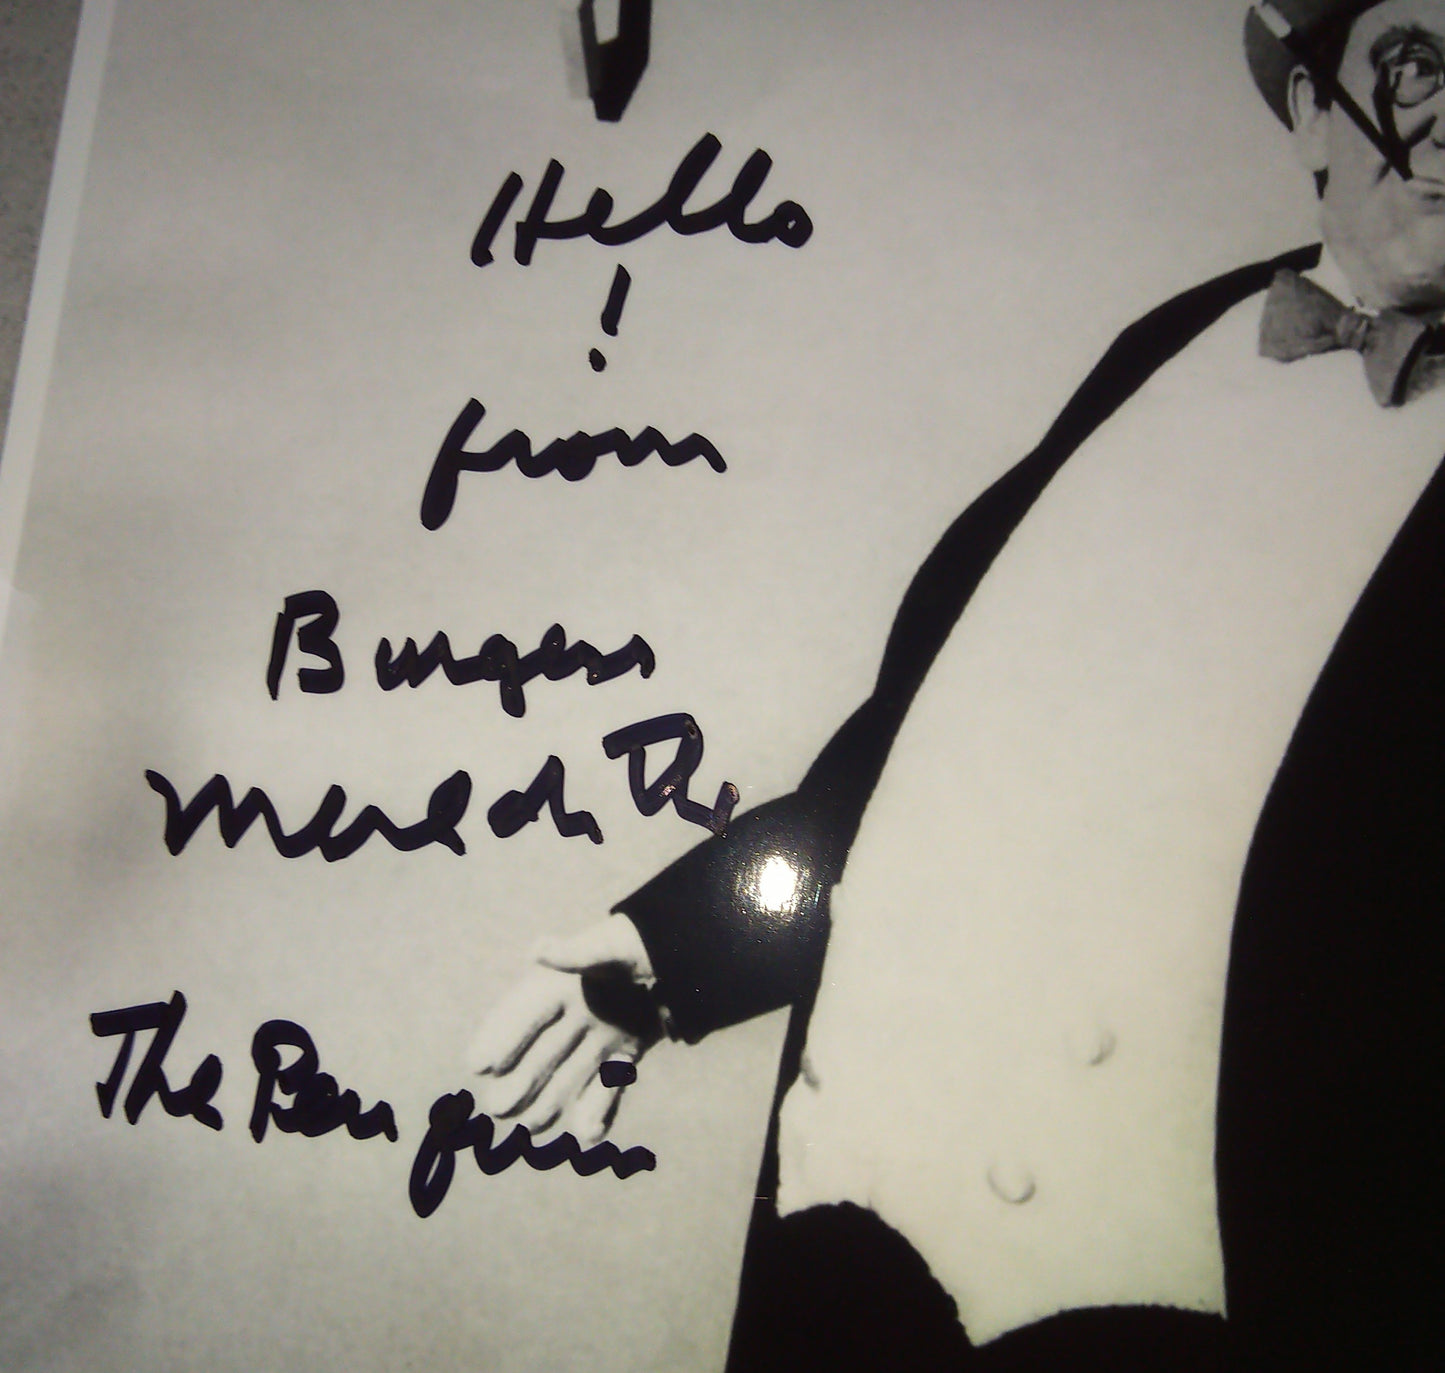 Hello
!
from
Burgess
Meredith
The Penguin